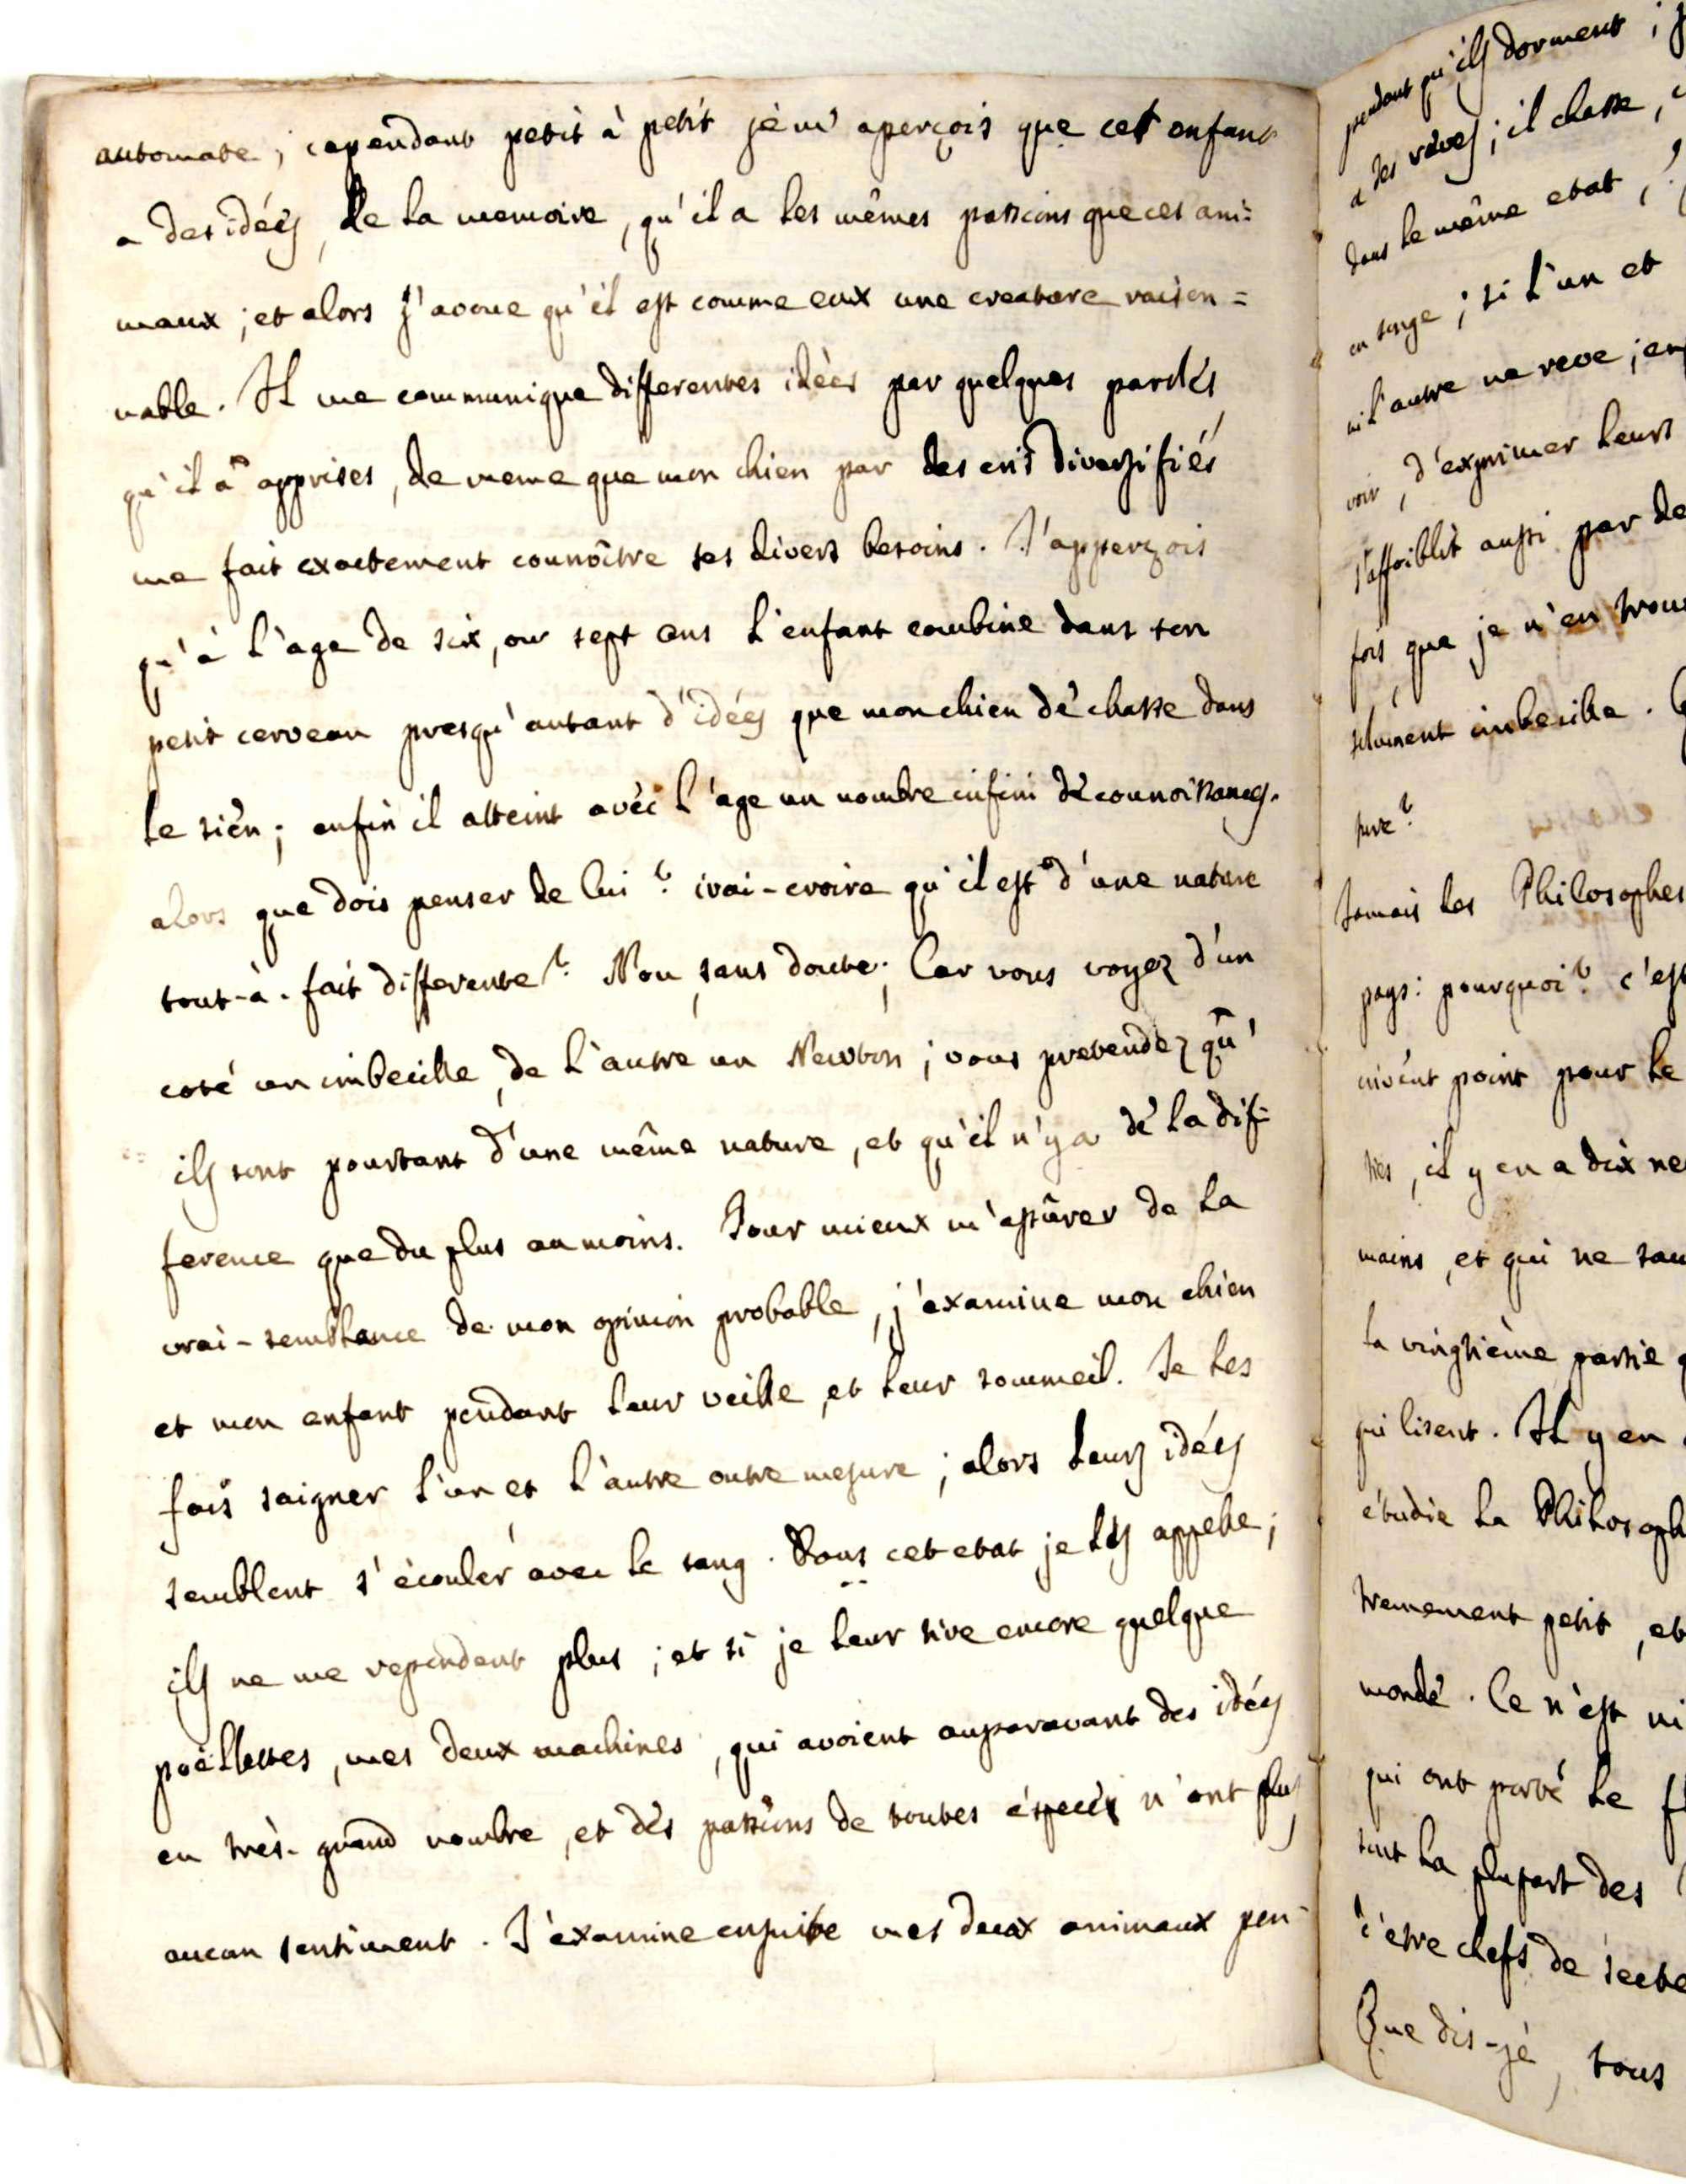 automate; cependant petit à petit je m'aperçois que cet enfant
a des idées, de la memoire, qu'il a les mêmes passions que ces ani=
maux; et alors j'avoue qu'il est comme eux une creature raison=
nable. Il me communique differentes idées par quelques parolés
qu'il a apprises, de meme que mon chien par des cris diversifiés
me fait exactement connoître ses divers besoins. J'apperçois
qu'à l'age de six, ou sept ans l'enfant combine dans son
petit cerveau presqu'autant d'idées que mon chien de chasse dans
le sien; enfin il atteint avec l'age un nombre infini de connoissances.
alors que dois penser de lui? irai-croire qu'il est d'une nature
tout-à-fait differente? Non, sans doute; Car vous voyez d'un
coté un imbecille, de l'autre un Newton; vous pretendez qu'
ils sont pourtant d'une même nature, et qu'il n'y a de la dif-
ference que du plus au moins. Pour mieux m'assûrer de la
vrai-semblance de mon opinion probable, j'examine mon chien
et mon enfant pendant leur veille, et leur sommeil. Je les
fais saigner l'un et l'autre outre mesure; alors leurs idées
semblent s'écouler avec le sang. Dans cet etat je les appelle;
ils ne me repondent plus; et si je leur tire encore quelque
poëllettes, mes deux machines, qui avoient auparavant des idées
en très-grand nombre, et des passions de toutes éspeces n'ont plus
aucun sentiment. J'examine ensuite mes deux animaux pen-
pendant qu'ils dorment;
a des rêves; il chasse,
dans le même etat,
en songe; si l'un et
ni l'autre ne reve; en
voir, d'exprimer leurs
s'affoiblit aussi par de
fois que je n'en trou
solument imbecille.
Jamais les Philosophes
pays: pourquoi? c'est
crivent point pour le
ties, il y en a dix ne
mains, et qui ne sau
la vingtième partie
qui lisent. Il y en
étudie la Philosoph
tremement petit, et
monde. Ce n'est ni
qui ont porté le fl
sont la plupart des
d'être chefs de secte
Que dis-je, tous